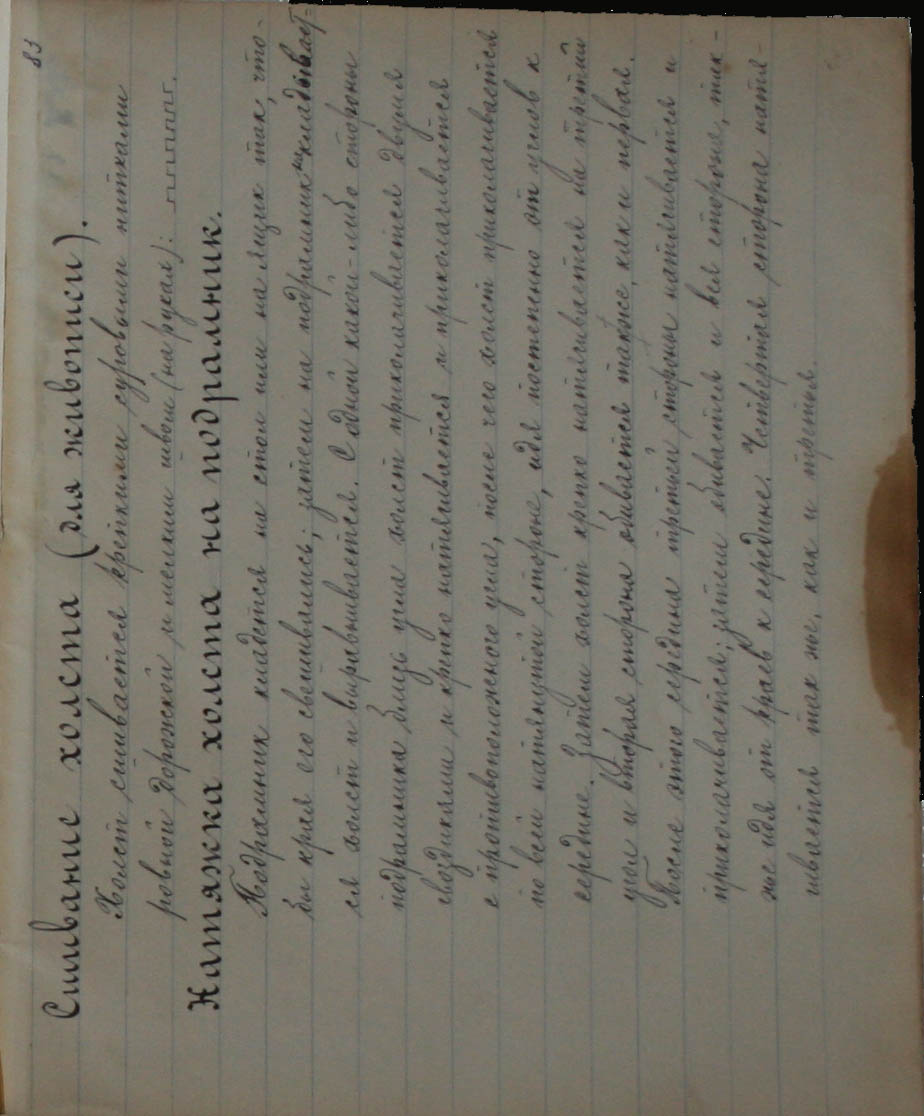 83
Сшивание холста (для живописи).
Холст сшивается крепкими суровыми нитками
ровной дорожкой и мелкими швом (на руках):
Натяжка холста на подрамник.
Подрамник кладется на стол или на ящик так, что-
бы края его свешивались; затем на подрамник накладывает-
ся холст и выравнивается. С одной какой-либо стороны
подрамника близь угла холст приколачивается двумя
гвоздиками и крепко натягивается и приколачивается
с противоположного угла, после чего холст приколачивается
по всей натянутой стороне, идя постепенно от углов к
середине. Затем холст крепко натягивается на третий
угол и вторая сторона обивается также, как и первая.
После этого середина третьей стороны натягивается и
приколачивается; затем обивается и вся сторона, так-
же идя от краев к середине. Четвертая сторона натя-
гивается так же, как и третья.